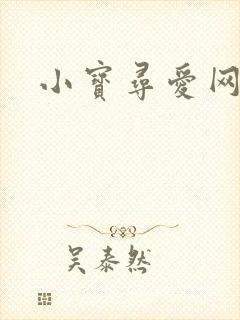 小寶尋愛网
吴泰然